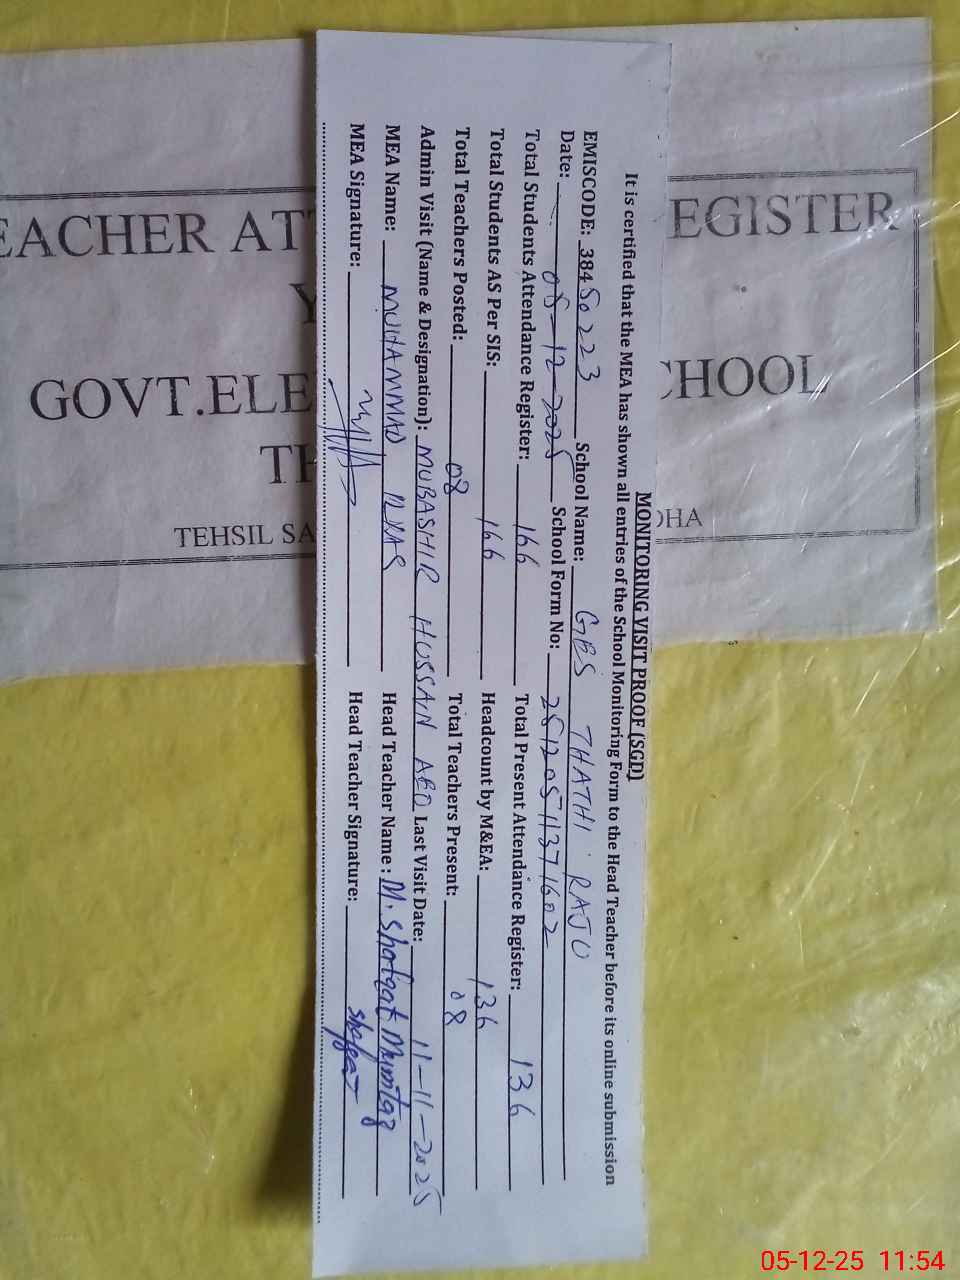 MONITORING VISIT PROOF (SGD)
It is certified that the MEA has shown all entries of the School Monitoring Form to the Head Teacher before its online submission
EMISCODE: 38450223 School Name: GES THATHI RAJU
Date: 05-12-2025 School Form No: 25120511371602
Total Students Attendance Register: 166 Total Present Attendance Register: 136
Total Students AS Per SIS: 166 Headcount by M&EA: 136
Total Teachers Posted: 08 Total Teachers Present: 08
Admin Visit (Name & Designation): MUBASHIR HUSSAIN AEO Last Visit Date: 11-11-2025
MEA Name: MUHAMMAD ILYAS Head Teacher Name: M. Shafqat Mumtaz
MEA Signature: Head Teacher Signature: Shafqat
EACHER AT EGISTER
Y
GOVT.ELE CHOOL
TH
TEHSIL SA DHA
05-12-25 11:54